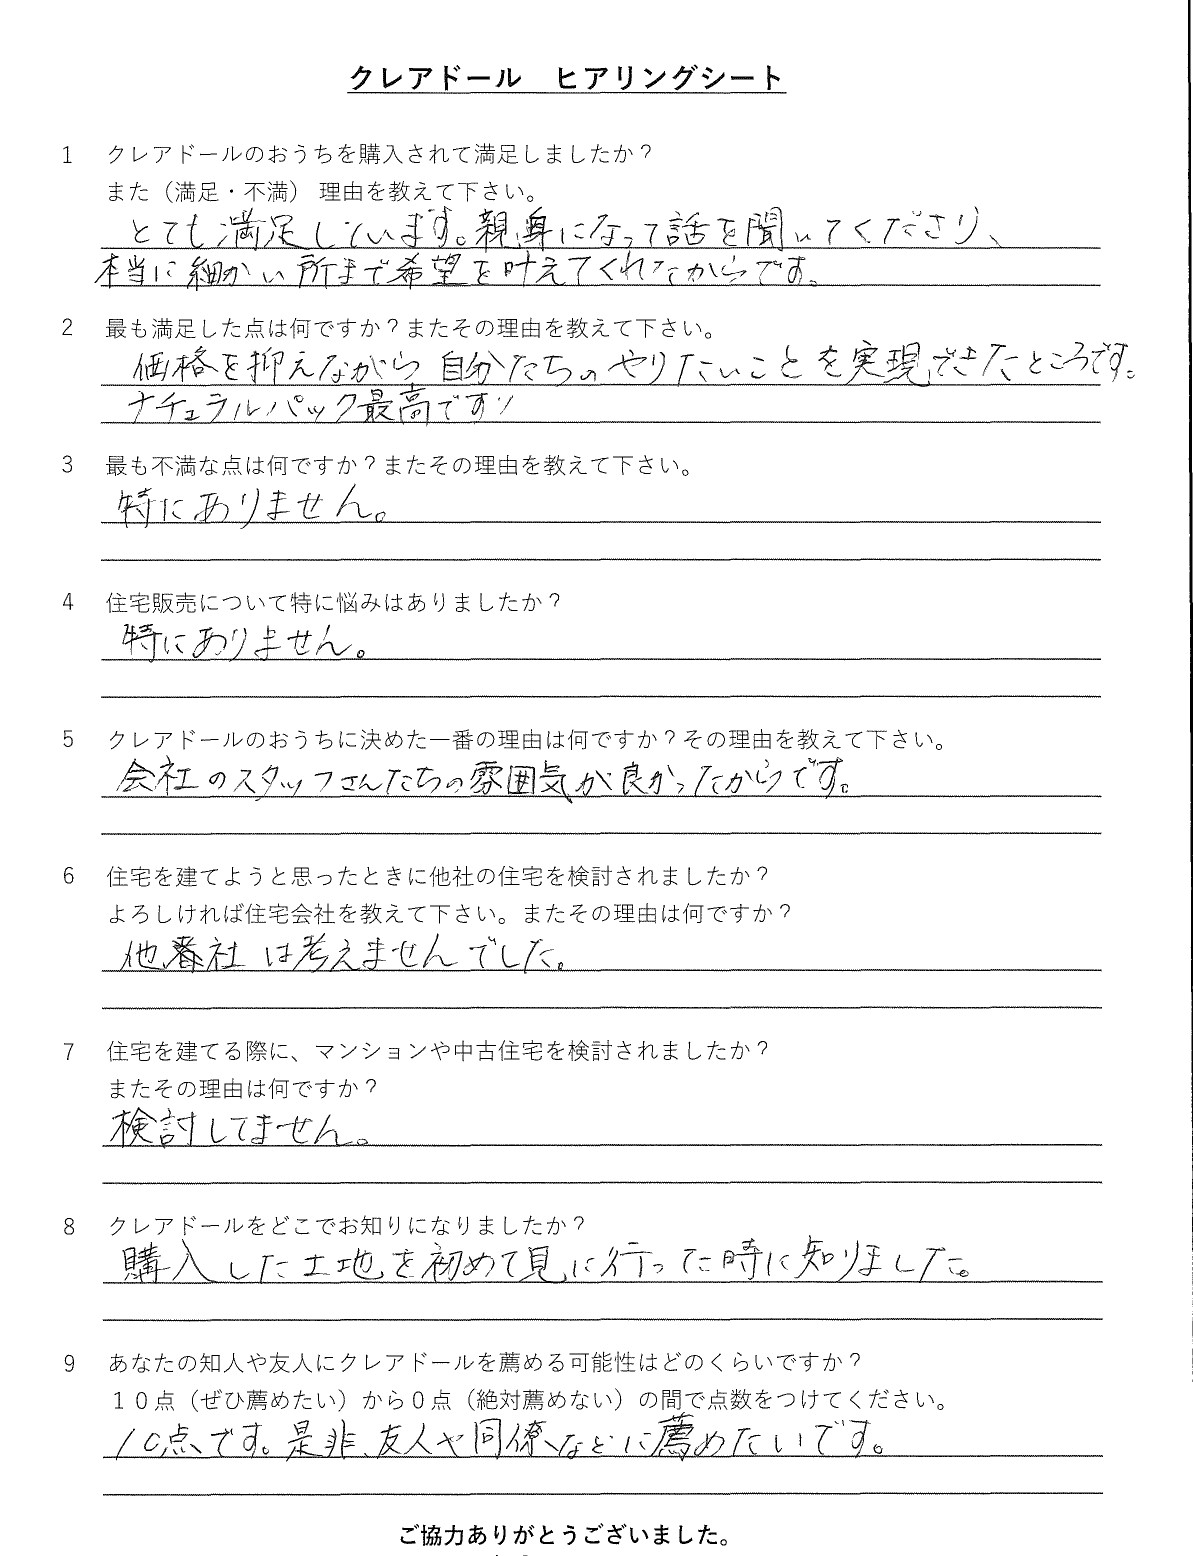 クレアドール　ヒアリングシート
1 クレアドールのおうちを購入されて満足しましたか？
また（満足・不満） 理由を教えて下さい。
とても満足しています。親身になって話を聞いてくださり、
本当に細かい所まで希望を叶えてくれたからです。
2 最も満足した点は何ですか？またその理由を教えて下さい。
価格を抑えながら自分たちのやりたいことを実現できたところです。
ナチュラルパック最高です！
3 最も不満な点は何ですか？またその理由を教えて下さい。
特にありません。
4 住宅販売について特に悩みはありましたか？
特にありません。
5 クレアドールのおうちに決めた一番の理由は何ですか？その理由を教えて下さい。
会社のスタッフさんたちの雰囲気が良かったからです。
6 住宅を建てようと思ったときに他社の住宅を検討されましたか？
よろしければ住宅会社を教えて下さい。またその理由は何ですか？
他社は考えませんでした。
7 住宅を建てる際に、マンションや中古住宅を検討されましたか？
またその理由は何ですか？
検討してません。
8 クレアドールをどこでお知りになりましたか？
購入した土地を初めて見に行った時に知りました。
9 あなたの知人や友人にクレアドールを薦める可能性はどのくらいですか？
１０点（ぜひ薦めたい）から０点（絶対薦めない）の間で点数をつけてください。
10点です。是非、友人や同僚などに薦めたいです。
ご協力ありがとうございました。